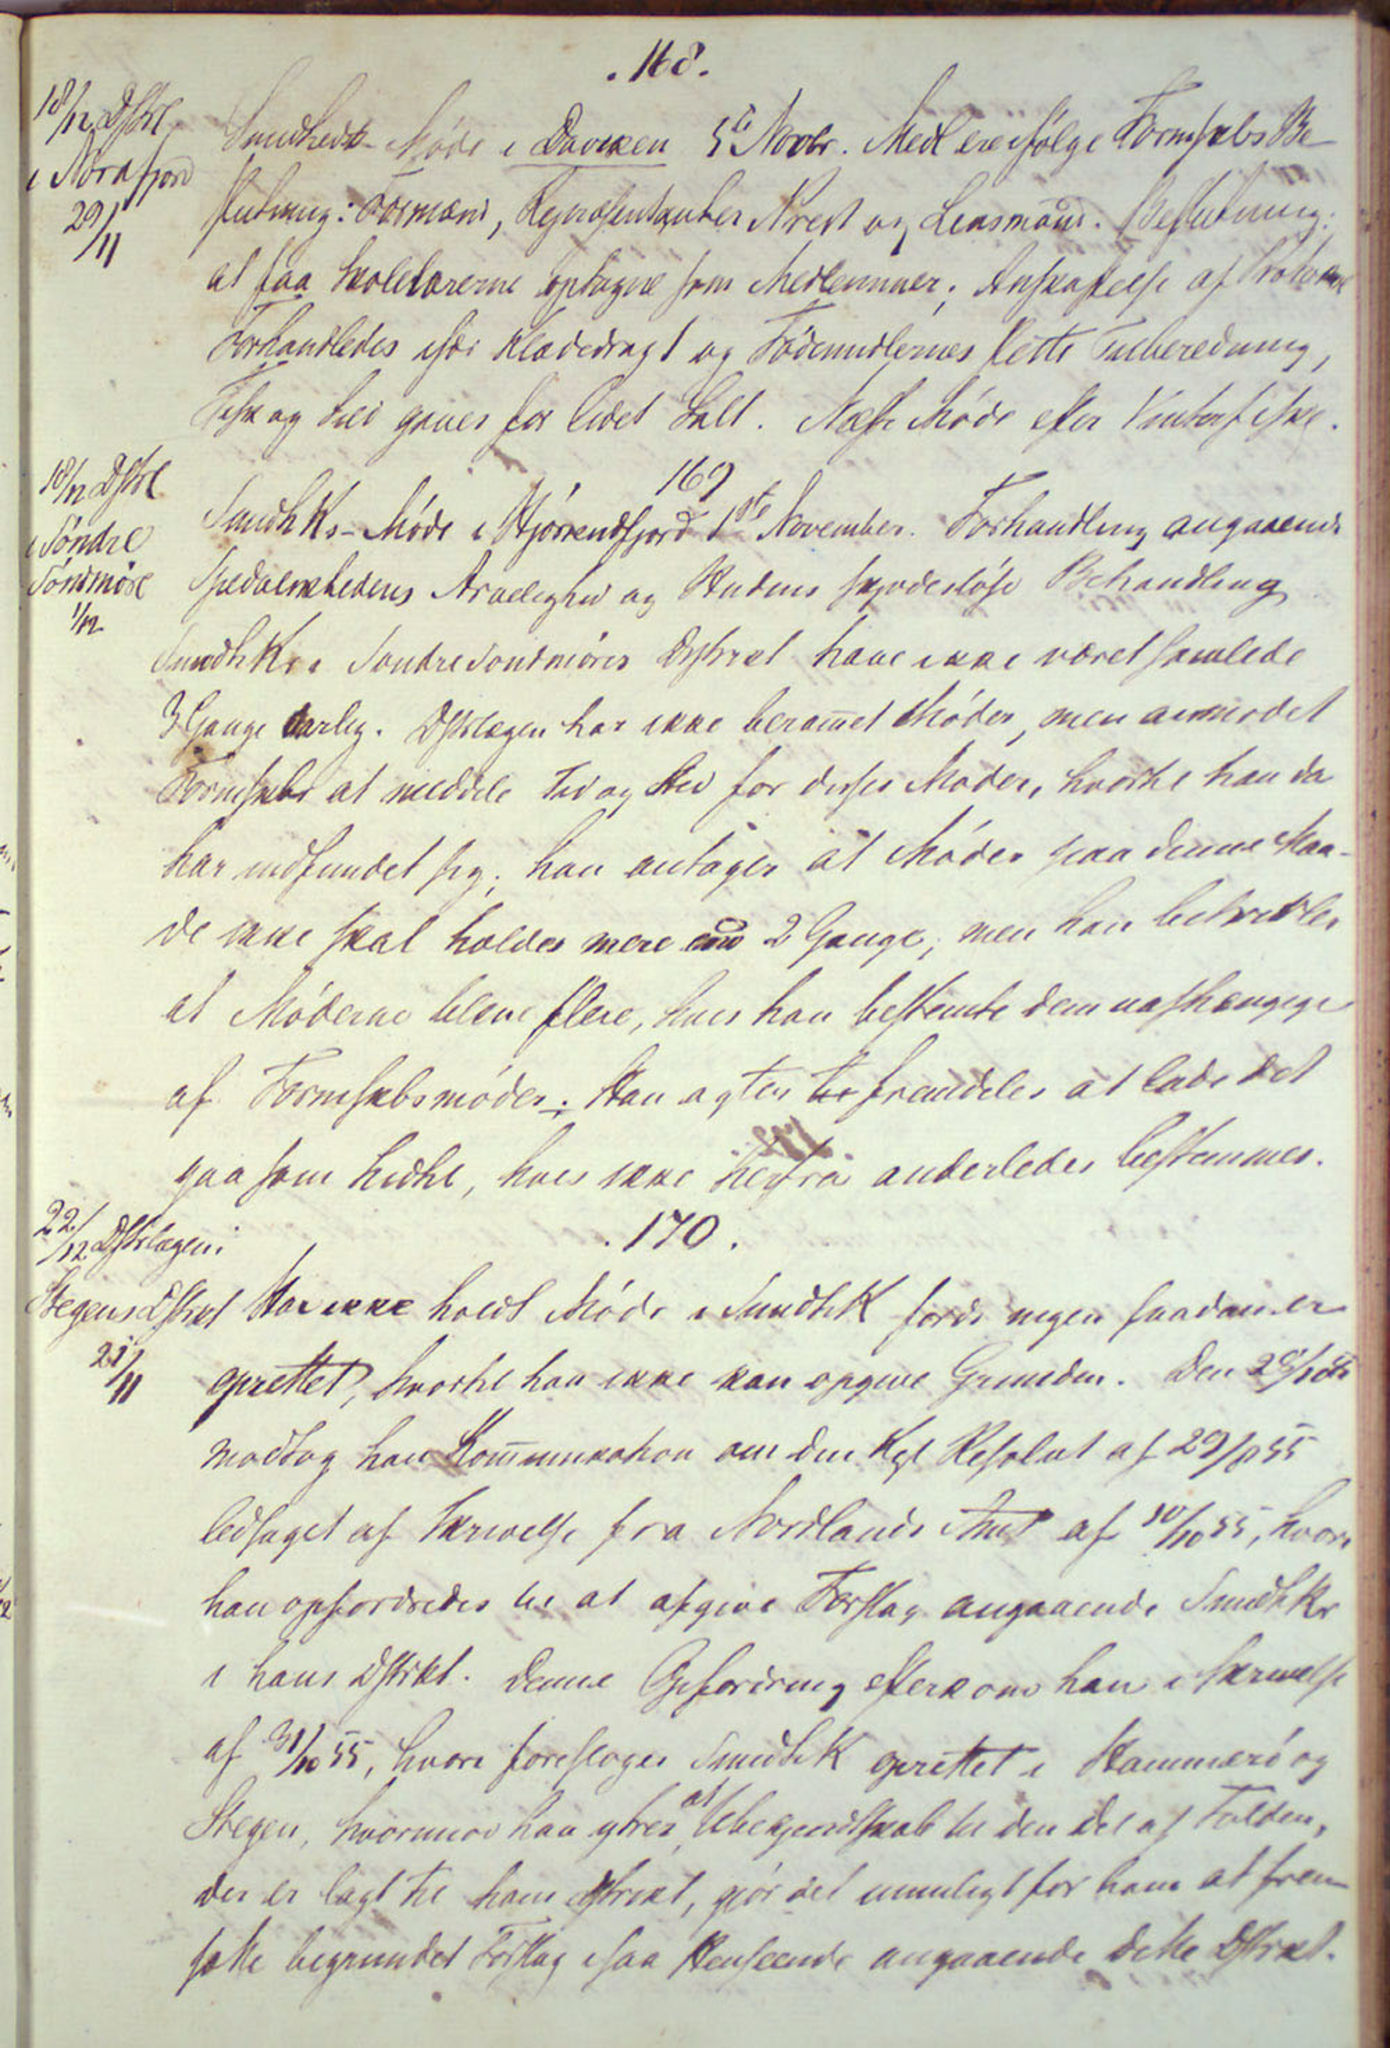 .168.
18/12 Dstrl
i Nordfjord
29/11
Sundheds-Møde i Daviken 5te Novbr. Medl ere ifølge Formskbs Be-
slutning: Formænd, Repræsentanter Prest og Lensmand. Beslutning:
at faa Skolelærerne optagne som Medlemmer; Anskaffelse af
Forhandledes især Klædedragt og Fødemidlernes slette Tilberedning,
Fisk og Sild gives for lidet Salt. Næste Møde efter Vinterfiske.
169
18/12 Dstrl
i Søndre
Søndmøre
1/12
SundhKs-Møde i Hjørrendfjord 1ste November. Forhandling angaaende
Spedalskhedens Arvelighed og Hudens skjødesløse Behandling
SundhKr i Søndre Søndmøres Distrikt have ikke været samlede
3 Gange aarlig. Dstrlægen har ikke berammet Møder, men anmodet
Formskbt at meddele Tid og Sted for disse Møder, hvortil han da
har indfundet sig; han antager at Møder paa denne Maa-
de ikke skal holdes mere end 2 Gange, men han betvivler
at Møderne bleve flere, hvis han bestemte dem uafhængige
af Formskbsmøder; Han agter fremdeles at lade det
gaa som hidtil, hvis ikke herfra anderledes bestemmes.
.170.
22/12 Dstrlægen i
Stegens Dstrkt
21/11
Har ikke holdt Møde i SundhK fordi ingen saadan er
oprettet, hvortil han ikke kan opgive Grunden. Den 28/10 55
modtog han Kommunikation om den Kgl Resolut af 29/8 55
ledsaget af Skrivelse fra Nordlands Amt af 10/10 55, hvori
han opfordredes til at afgive Forslag angaaende SundhKr
i hans Dstrkt. Denne Opfordring efterkom han i Skrivelse
af 31/10 55, hvori foresloges SundhK oprettet i Hammerø og
Stegen, hvorimod han ytrer, at Ubekjendtskab til den Del af Folden,
der er lagt til hans Dstrikt, gjør det umuligt for ham at frem-
sætte begrundet Forslag i saa Henseende angaaende dette Dstrikt.